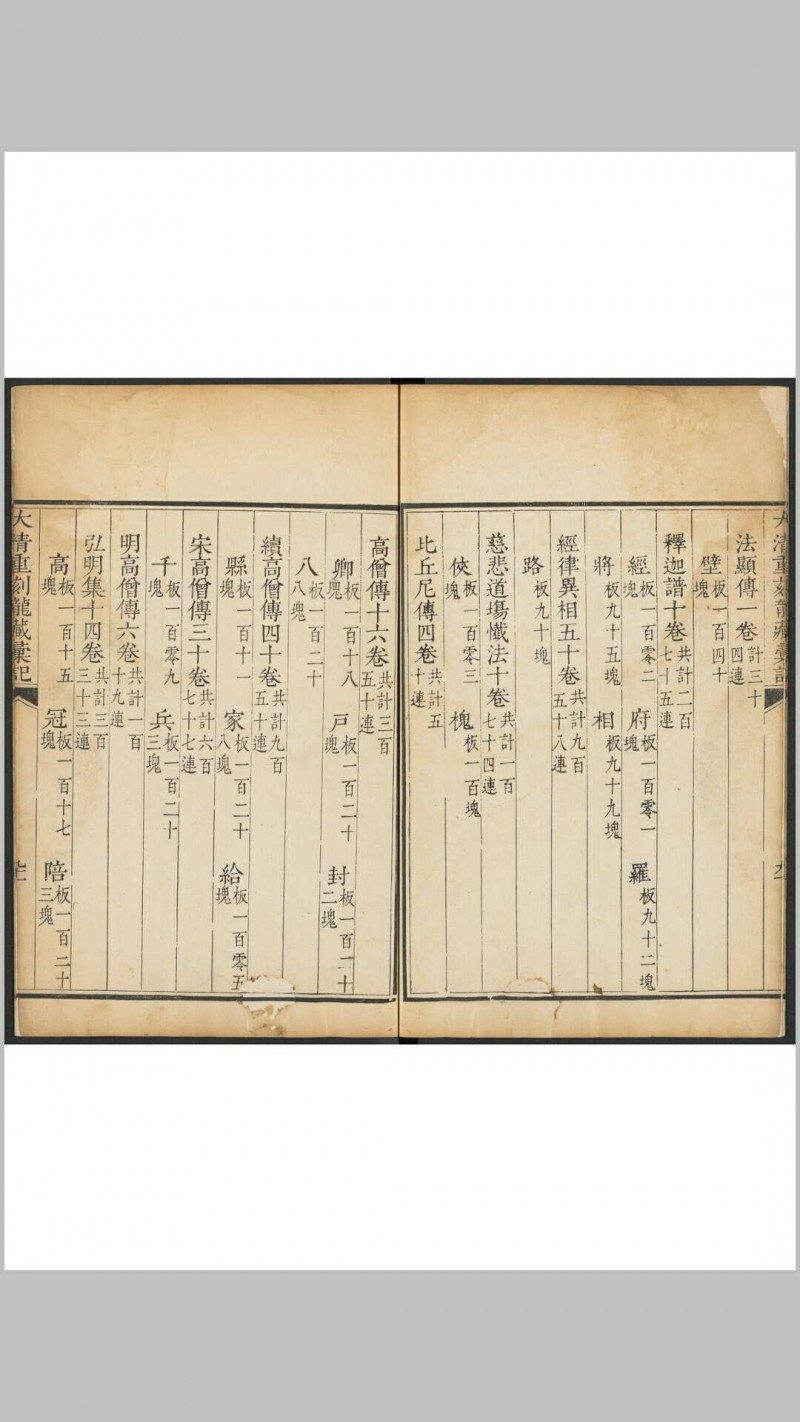 大清重刻龍藏彙記
法顯傳一卷 計三十四連
壁 板一百四十塊
釋迦譜十卷 共計二百七十五連
經 板一百零二塊 府 板一百零一塊 羅 板九十二塊
將 板九十五塊 相 板九十九塊
經律異相五十卷 共計九百五十八連
路 板九十塊
慈悲道場懺法十卷 共計一百七十四連
俠 板一百零三塊 槐 板一百塊
比丘尼傳四卷 共計五十連
高僧傳十六卷 共計三百五十連
卿 板一百十八塊 戸 板一百二十塊 封 板一百二十二塊
八 板一百二十八塊
續高僧傳四十卷 共計九百五十連
縣 板一百十一塊 家 板一百二十八塊 給 板一百零五塊
宋高僧傳三十卷 共計六百七十七連
千 板一百零九塊 兵 板一百二十三塊
明高僧傳六卷 共計一百十九連
弘明集十四卷 共計三百三十三連
高 板一百十五塊 冠 板一百十七塊 陪 板一百二十三塊
大清重刻龍藏彙記